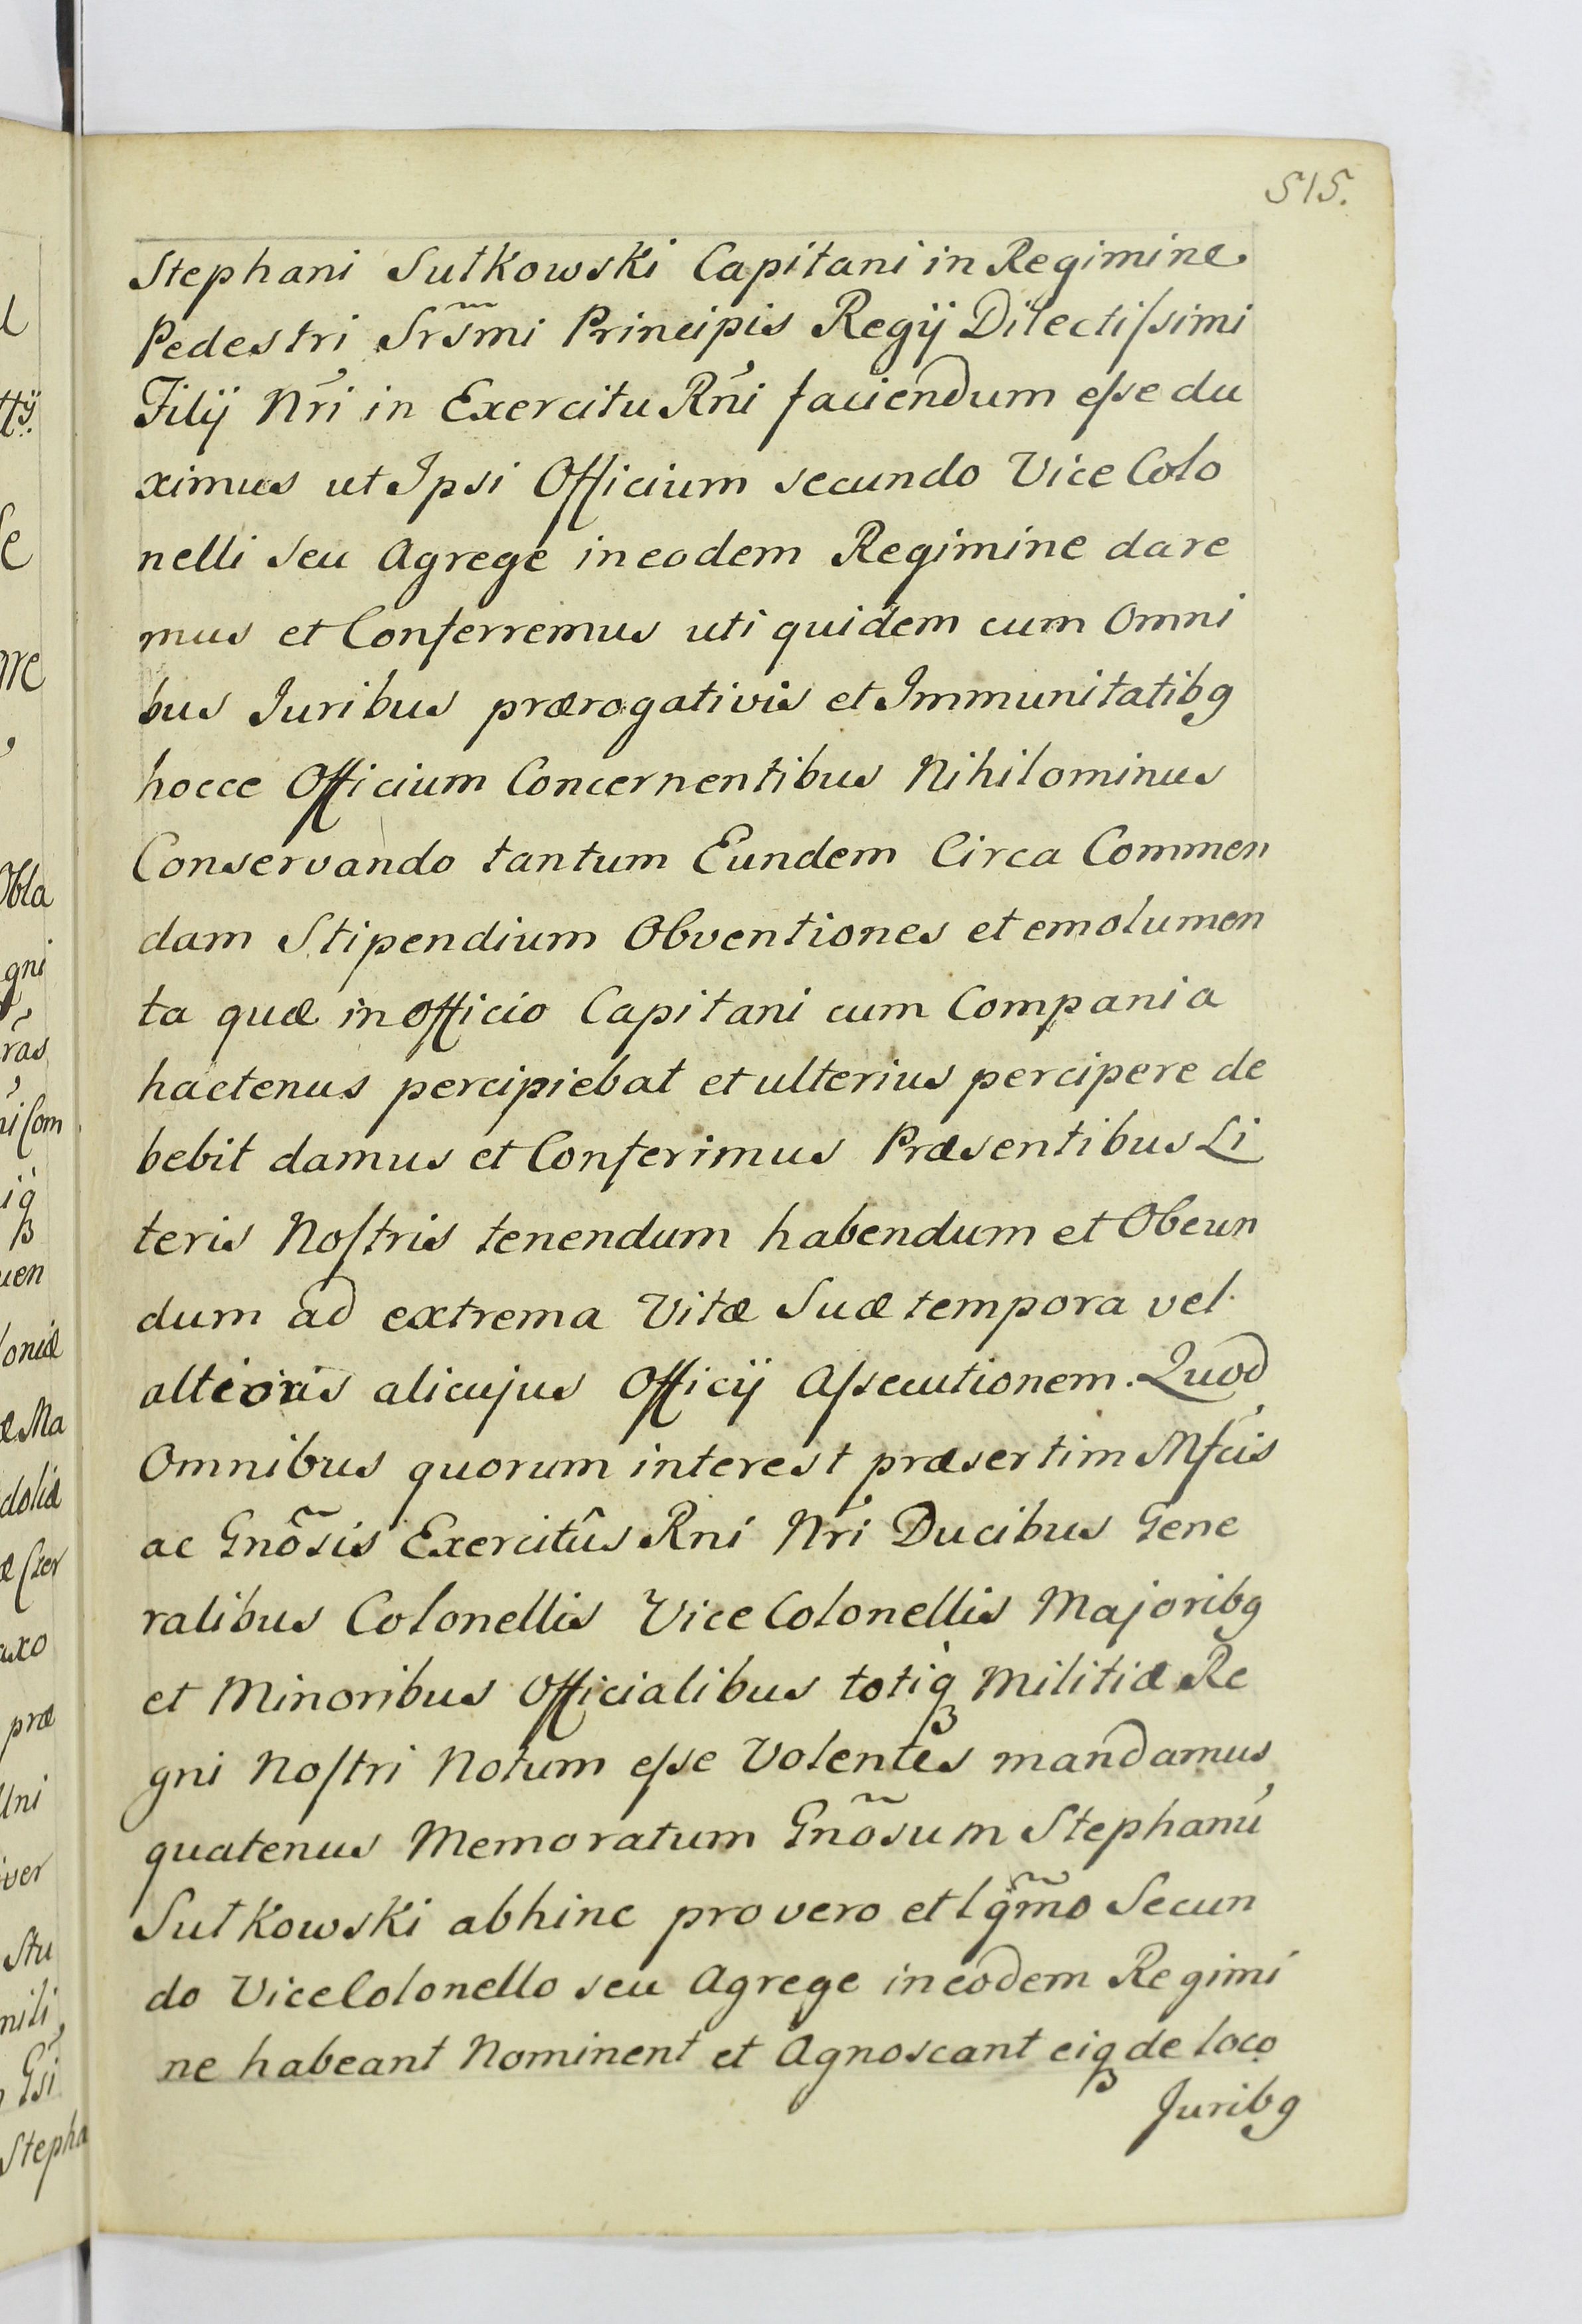 515.
Stephani Sutkowski Capitani in Regimine
Pedestri Srs̃mi Principis Regij Dilectiſsimi
Filij Nr̃i in Exercitu Rñi faciendum eſse du
ximus ut Ipsi Officium secundo Vice Colo
nelli seu Agregé in eodem Regimine dare
mus et Conferremus uti quidem cum Omni
bus Juribus prærogativis et Immunitatibg
hocce Officium Concernentibus Nihilominus
Conservando tantum Eundem Circa Commen
dam Stipendium Obventiones et emolumen
ta quæ in Officio Capitani cum Compania
hactenus percipiebat et ulterius percipere de
bebit damus et Conferimus Præsentibus Li
teris Noſtris tenendum habendum et Obeun
dum ad extrema Vitæ Suæ tempora vel
alterius alicujus Officij Aſsecutionem. Quod
Omnibus quorum interest præsertim Mfcis
ac Gnõsis Exercitûs Rni Nri Ducibus Gene
ralibus Colonellis Vice Colonellis Majoribg
et Minoribus Officialibus totiq́ʒ Militiæ Re
gni Noſtri Notum eſse Volentes mandamus
quatenus Memoratum Gnõsum Stephanú
Sutkowski abhinc pro vero et lgm̃o Secun
do Vice Colonello seu Agrege in eodem Regimi
ne habeant Nominent et Agnoscant eiqʒ de loco
Juribg